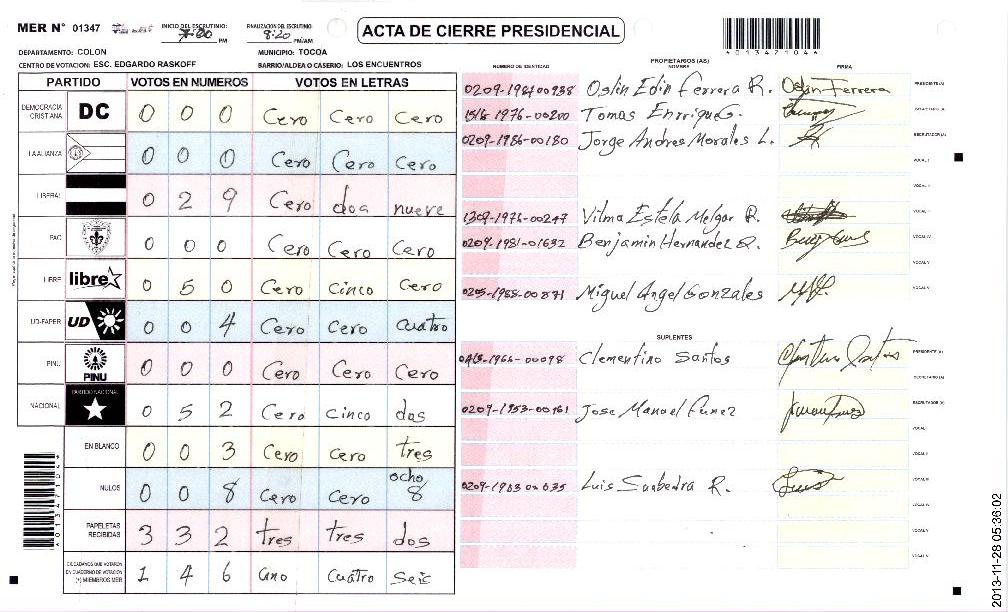 MER N° 01347 INICIO DEL ESCRUTINIO: 7:20 PM FINALIZACION DEL ESCRUTINIO 8:20 PM/AM
ACTA DE CIERRE PRESIDENCIAL
DEPARTAMENTO: COLON MUNICIPIO: TOCOA
CENTRO DE VOTACION: ESC. EDGARDO RASKOFF BARRIO/ALDEA O CASERIO: LOS ENCUENTROS
PARTIDO VOTOS EN NUMEROS VOTOS EN LETRAS
DEMOCRACIA CRISTIANA DC 0 0 0 Cero Cero Cero
LA ALIANZA 0 0 0 Cero Cero Cero
LIBERAL 0 2 9 Cero dos nueve
PAC 0 0 0 Cero Cero Cero
LIBRE libre 0 5 0 Cero Cinco Cero
UD-FAPER UD 0 0 4 Cero Cero cuatro
PINU PINU 0 0 0 Cero Cero Cero
NACIONAL PARTIDO NACIONAL 0 5 2 Cero Cinco dos
EN BLANCO 0 0 3 Cero Cero tres
NULOS 0 0 8 Cero Cero ocho 8
PAPELETAS RECIBIDAS 3 3 2 tres tres dos
CIUDADANOS QUE VOTARON EN CUADERNO DE VOTACION (+) MIEMBROS MER 1 4 6 uno Cuatro seis
PROPIETARIOS (AS)
NUMERO DE IDENTIDAD NOMBRE FIRMA
0209-1984-00938 Oslin Edin Ferrera R. Oslin Ferrera PRESIDENTE (A)
1976-00200 Tomas Enrrique G. SECRETARIO (A)
0209-1986-00180 Jorge Andres Morales L. ESCRUTADOR (A)
VOCAL I
VOCAL II
1309-1976-00247 Vilma Estela Melgar R.
0209-1981-01632 Benjamin Hernandez Q. VOCAL IV
VOCAL V
0205-1988-00871 Miguel Angel Gonzales
SUPLENTES
1966-00098 Clementino Santos PRESIDENTE (A)
SECRETARIO (A)
0209-1953-00161 Jose Manuel Funez ESCRUTADOR (A)
VOCAL I
VOCAL II
Luis Saabedra R.
VOCAL IV
VOCAL V
*01347104*
2013-11-28 05:36:02